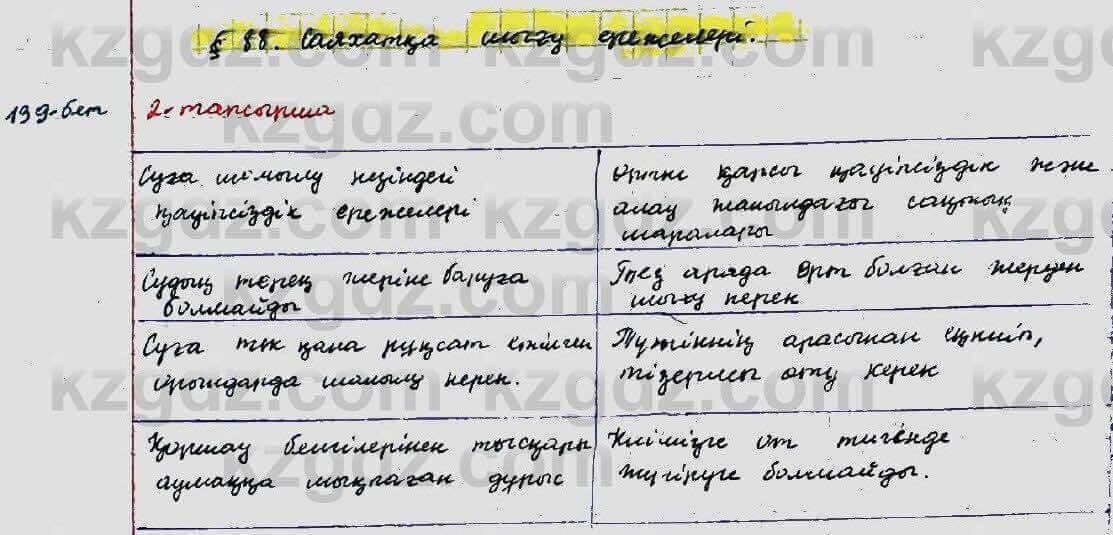 § 88. Саяхатқа шығу ережелері.
139-бет
2-тапсырма
Суға шомылу кезіндегі
қауіпсіздік ережелері
Өртке қарсы қауіпсіздік және
алау жанындағы сақтық
шаралары
Судың терең жеріне баруға
болмайды
Тез арада өрт болған жерден
шығу керек
Суға тек қана рұқсат етілген
орындарда шомылу керек.
Түтіннің арасынан еңкейіп,
тізерлеп өту керек
Қоршау белгілерінен тысқары
аумаққа шықпаған дұрыс
Киімізге от тигенде
жүгіруге болмайды.
kzgdz.com